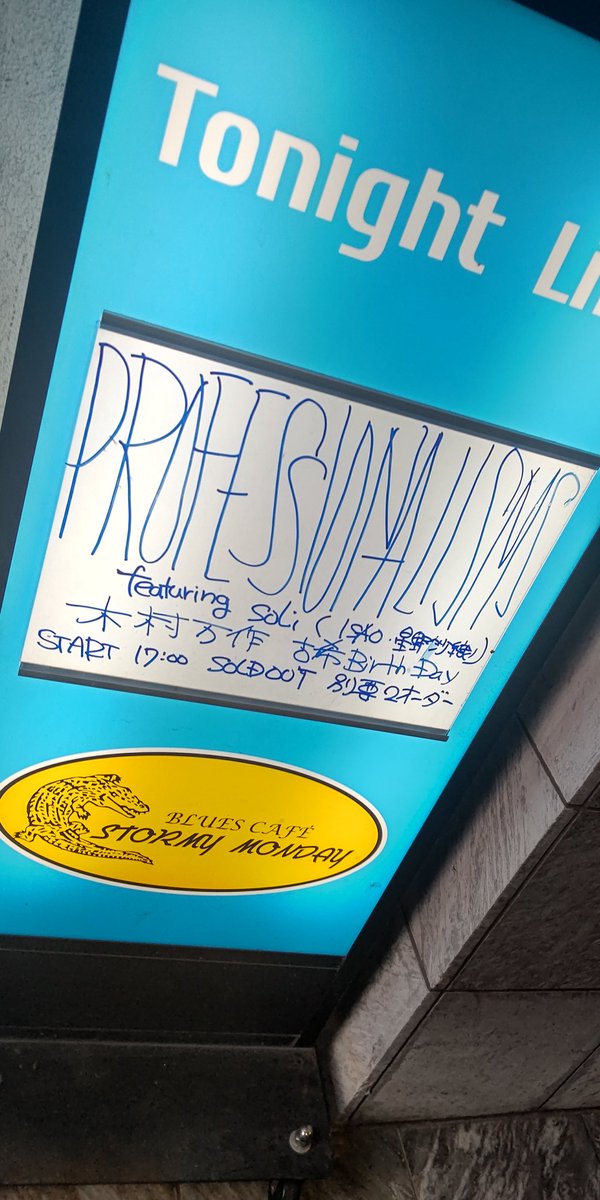 Tonight Li
PROFESSIONALISMS
featuring Soli (
木村万作 古希 Birth Day
START 17:00 SOLDOUT 別要2オーダー
BLUES CAFÉ
STORMY MONDAY